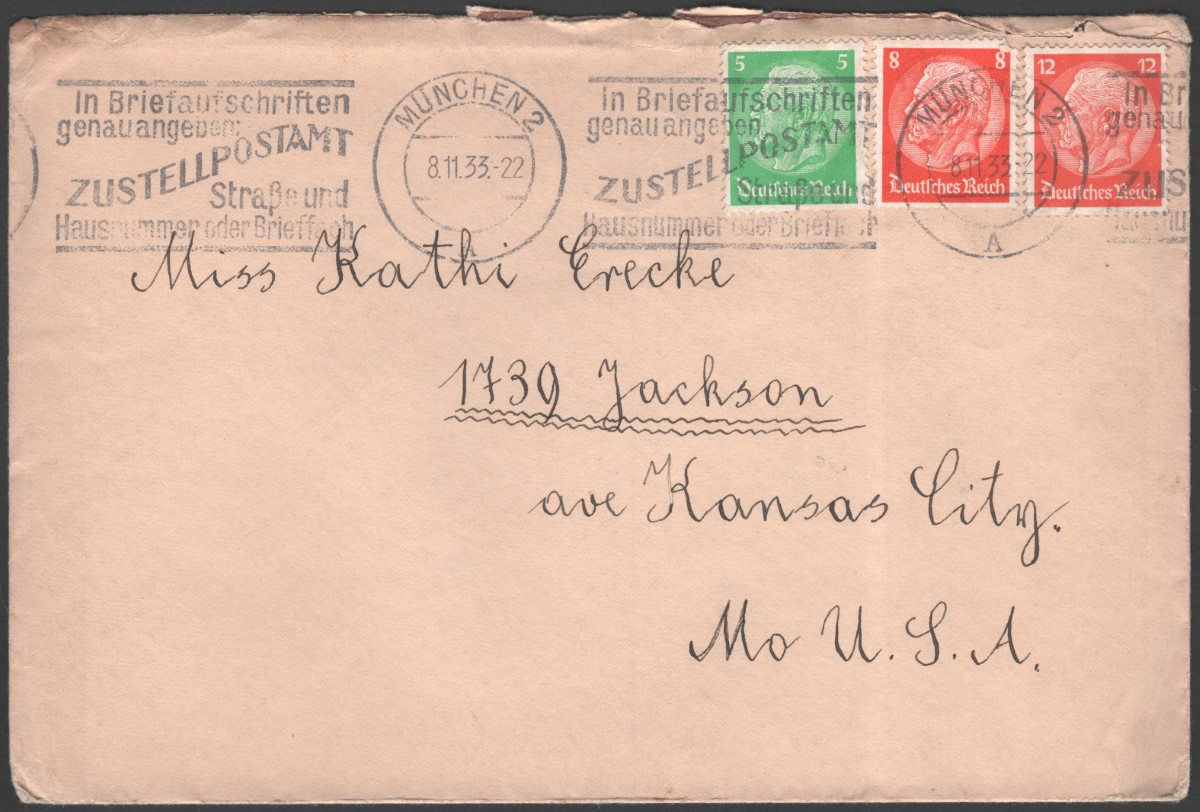 In Briefaufschriften
genau angeben:
ZUSTELLPOSTAMT
Straße und
Hausnummer oder Brieffach
MÜNCHEN 2
8.11.33.-22
A
In Briefaufschriften
genau angeben
ZUSTELLPOSTAMT
Straße und
Hausnummer oder Brieffach
5 5
Deutsches Reich
8 8
Deutsches Reich
12 12
Deutsches Reich
MÜNCHEN 2
8.11.33.-22
A
In Br
genau
ZUS
Hausnu
Miss Kathi Erecke
1739 Jackson
ave Kansas City.
Mo U. S. A.